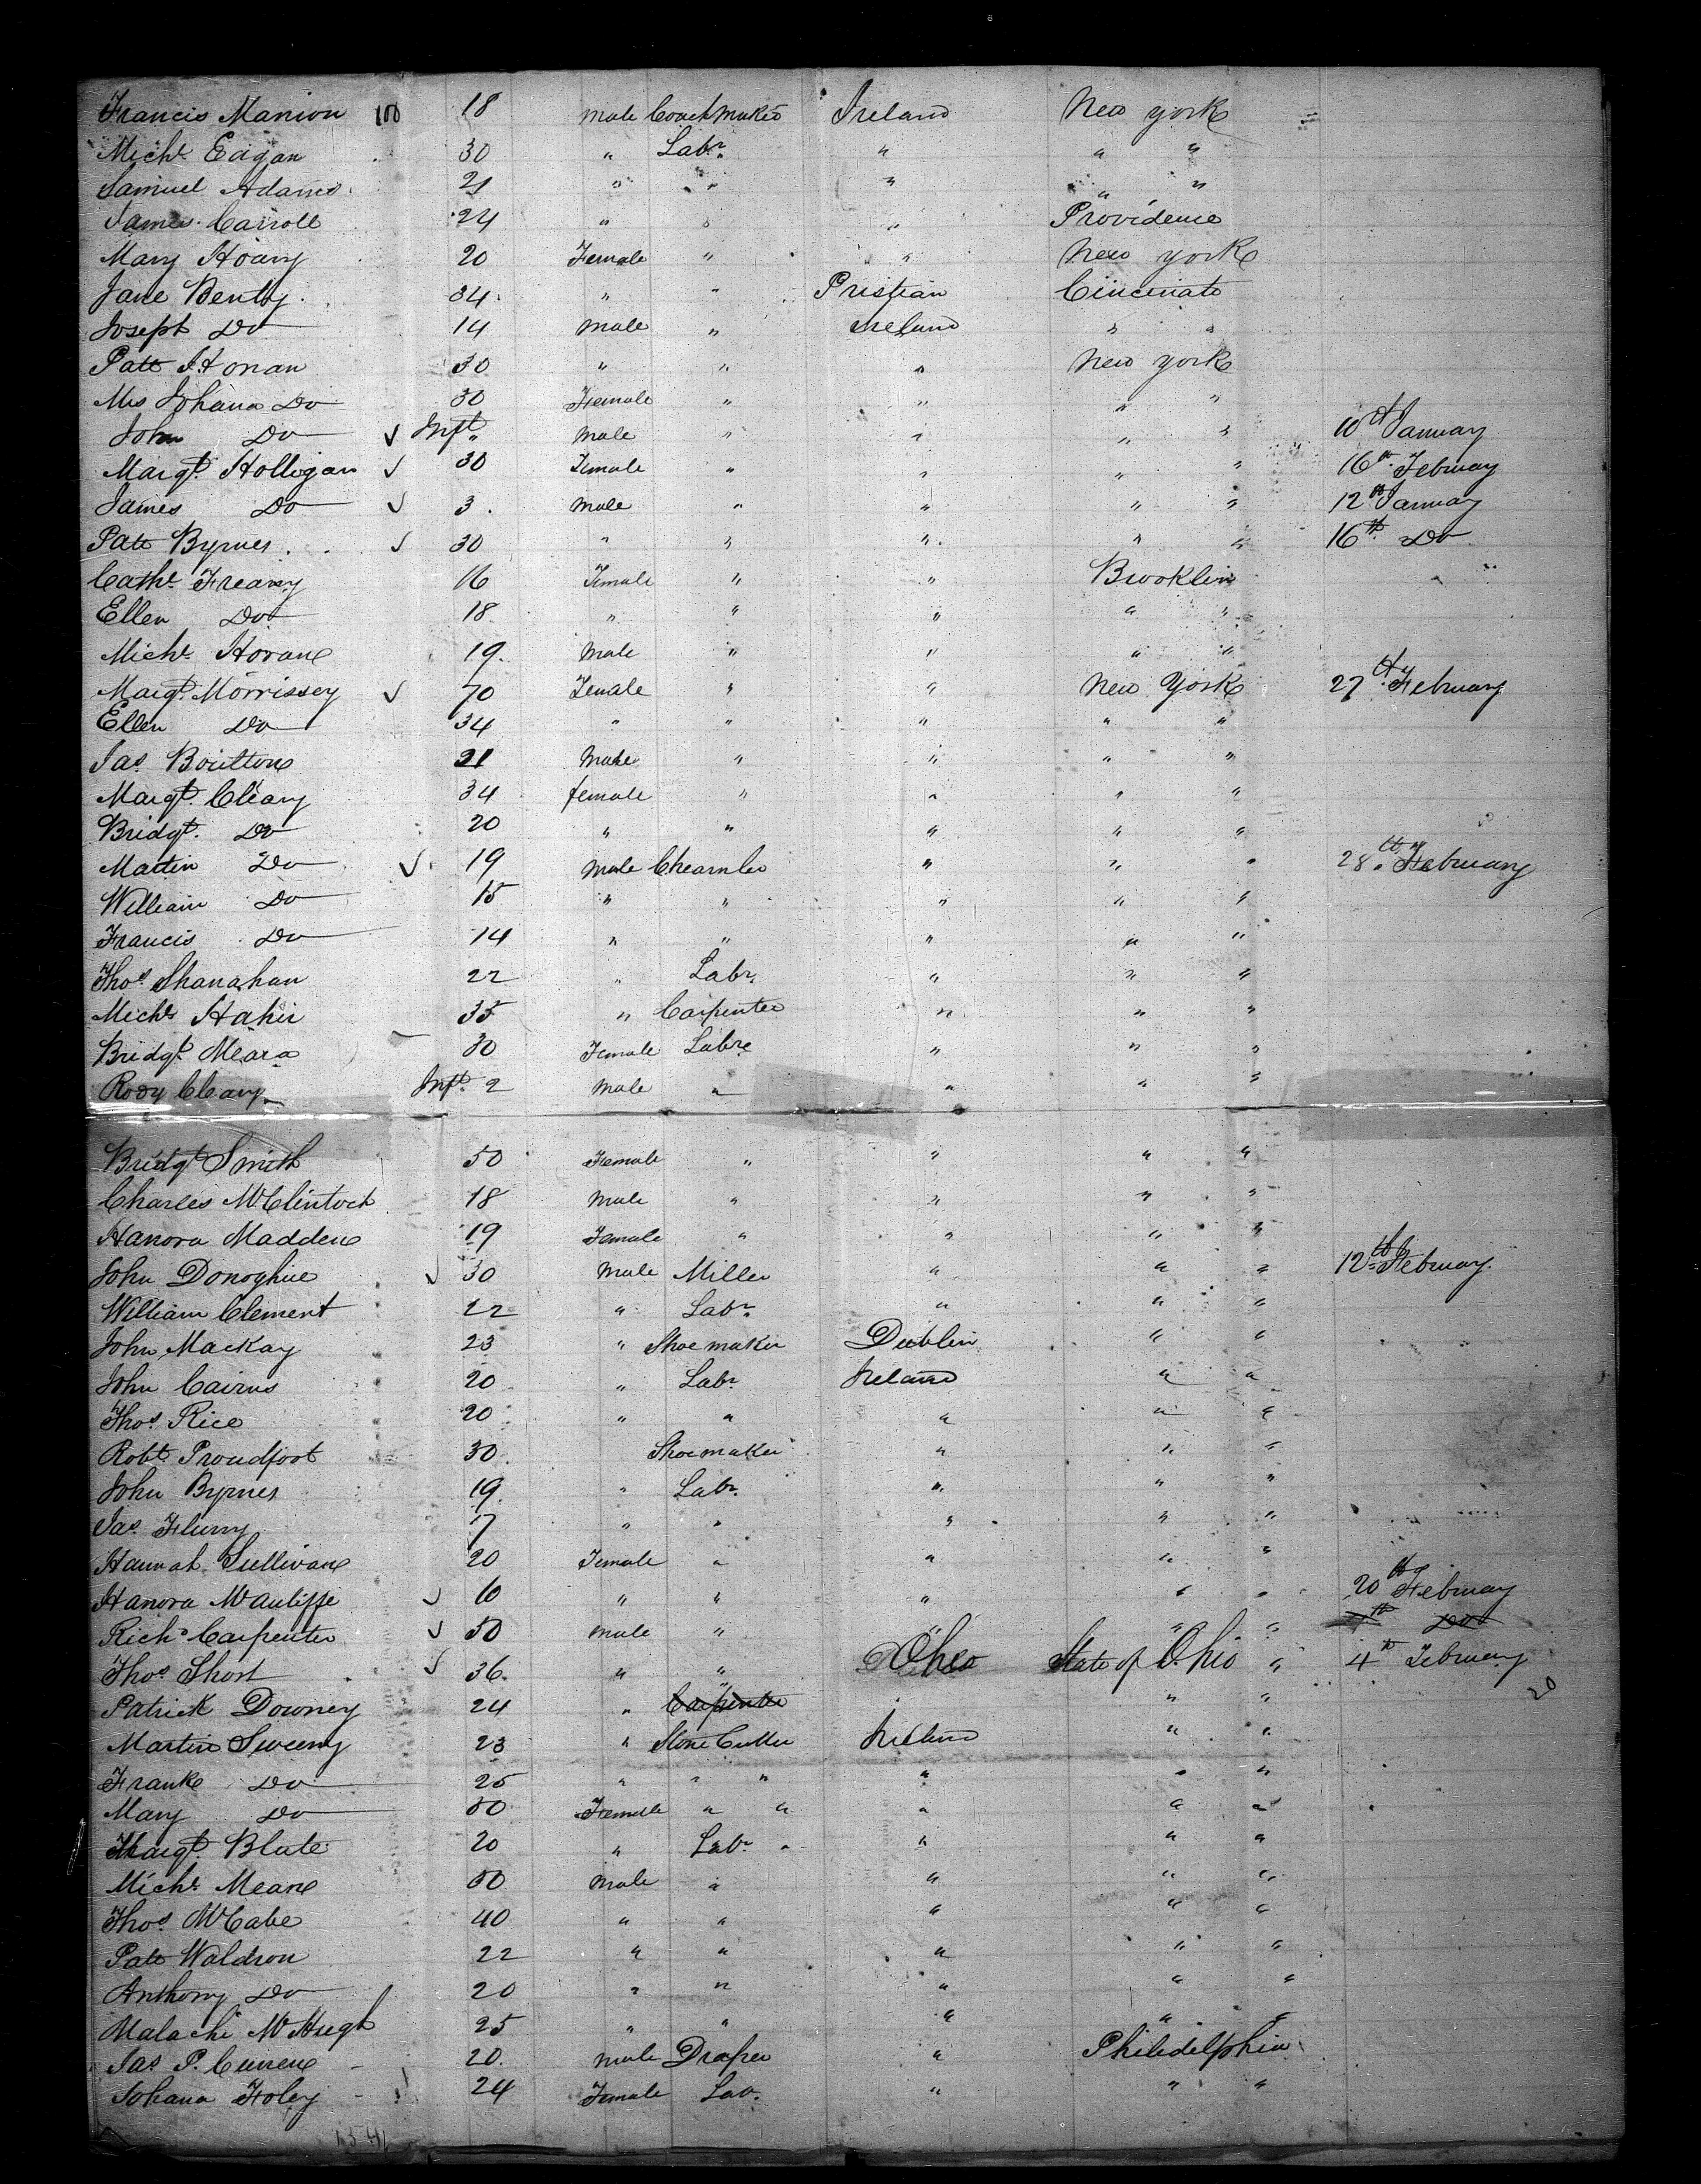 Francis Manion 100 18 male Coachmaker Ireland New York
Michl. Eagan 30 " Labr. " " "
Samuel Adams 21 " " " " "
James Carroll 24 " " " Providence
Mary Hoary 20 Female " " New York
Jane Bently 34 " " Cincinato
Joseph Do 14 male " Ireland " "
Patt Honan 30 " " " New York
Mrs Johana Do 30 Female " " " "
John Do ✓ Inft. male " " " " 10th January
Margt. Holligan ✓ 30 Female " " " " 16th February
James Do ✓ 3 male " " " " 12th January
Patt Byrnes ✓ 30 " " " " " 16th Do
Cathe. Freany 16 Female " " Brooklin
Ellen Do 18 " " " " "
Michl. Horane 19 male " " " "
Margt. Morrissey ✓ 70 Female " " New York 27th February
Ellen Do 34 " " " " "
Jas. Boultone 21 male " " " "
Margt. Cleary 34 female " " " "
Bridgt. Do 20 " " " " "
Martin Do ✓ 19 male " " " 28th February
William Do 15 " " " " "
Francis Do 14 " " " " "
Thos. Shanahan 22 " Labr. " " "
Michl. Hahir 35 " Carpenter " " "
Bridgt. Meara 30 Female Labre " " "
Rody Cleary Inft. 2 male " " " "
Bridgt Smith 50 Female " " " "
Charles McClintock 18 male " " " "
Hanora Madden 19 Female " " " "
John Donoghue ✓ 30 male Miller " " " 12th February
William Clement 22 " Labr. " " "
John Mackay 23 " Shoemaker Dublin " "
John Cairns 20 " Labr. Ireland " "
Thos. Rice 20 " " " " "
Robt. Proudfoot 30 Shoemaker " " "
John Byrnes 19 " Labr. " " "
Jas. Flurry 17 " " " " "
Hannah Sullivane 20 Female " " " "
Hanora McAuliffe ✓ 60 " " " " " 20th February
Richd. Carpenter ✓ 50 male " " " " Do
Thos. Short ✓ 36 " " Ohio State of Ohio " 4th February
Patrick Downey 24 " Carpenter " " " 20
Martin Sweeny 23 " Stone Cutter Ireland " "
Frank Do 25 " " " " " "
Mary Do 50 Female " " " " "
Margt. Blake 20 " Labr. " " "
Michl. Meane 50 male " " " "
Thos. McCabe 40 " " " " "
Patt Waldron 22 " " " " "
Anthony Do 20 " " " " "
Malachi McHugh 25 " " " " "
Jas. P. Currene 20 male Draper " Philedelphia
Johana Foley 24 Female Lab. " " "